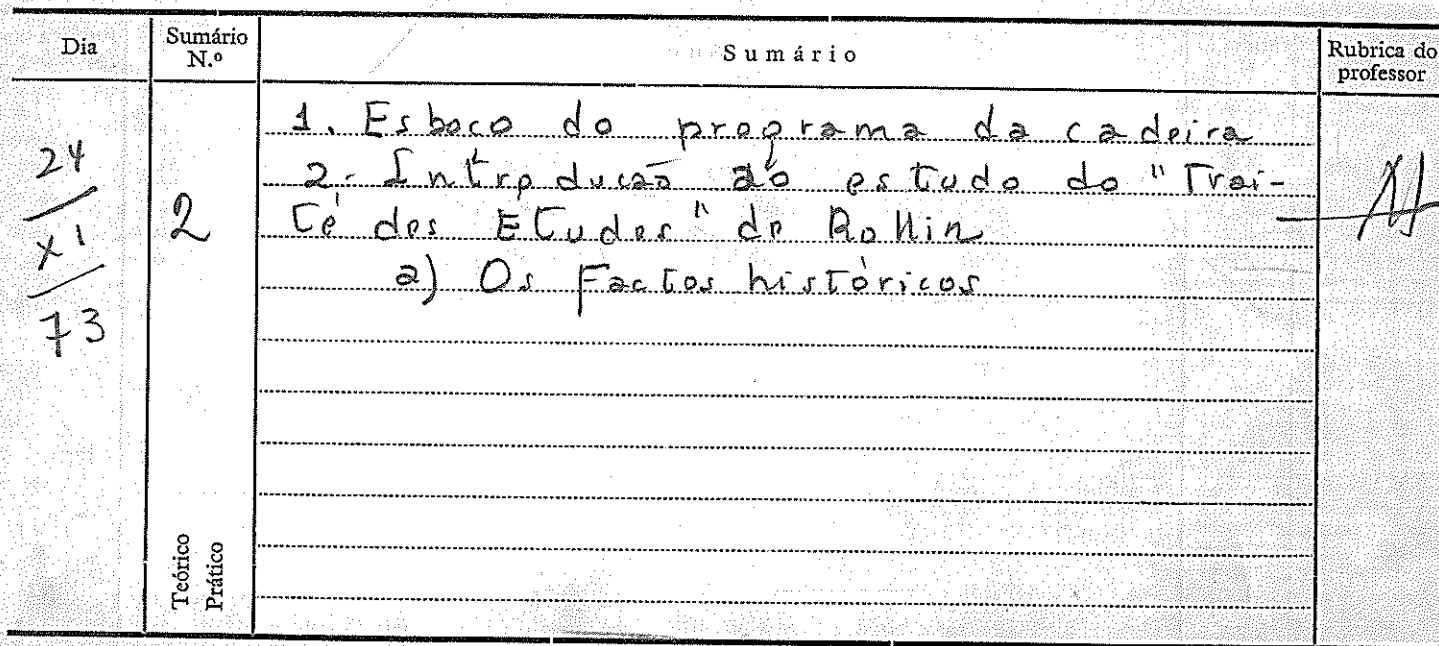 Dia
Sumário N.º
Sumário
Rubrica do professor
24
XI
73
2
1. Esboço do programa da cadeira
2. Introdução ao estudo do "Trai-
té des Études" de Rollin
a) Os Factos históricos
Teórico
Prático